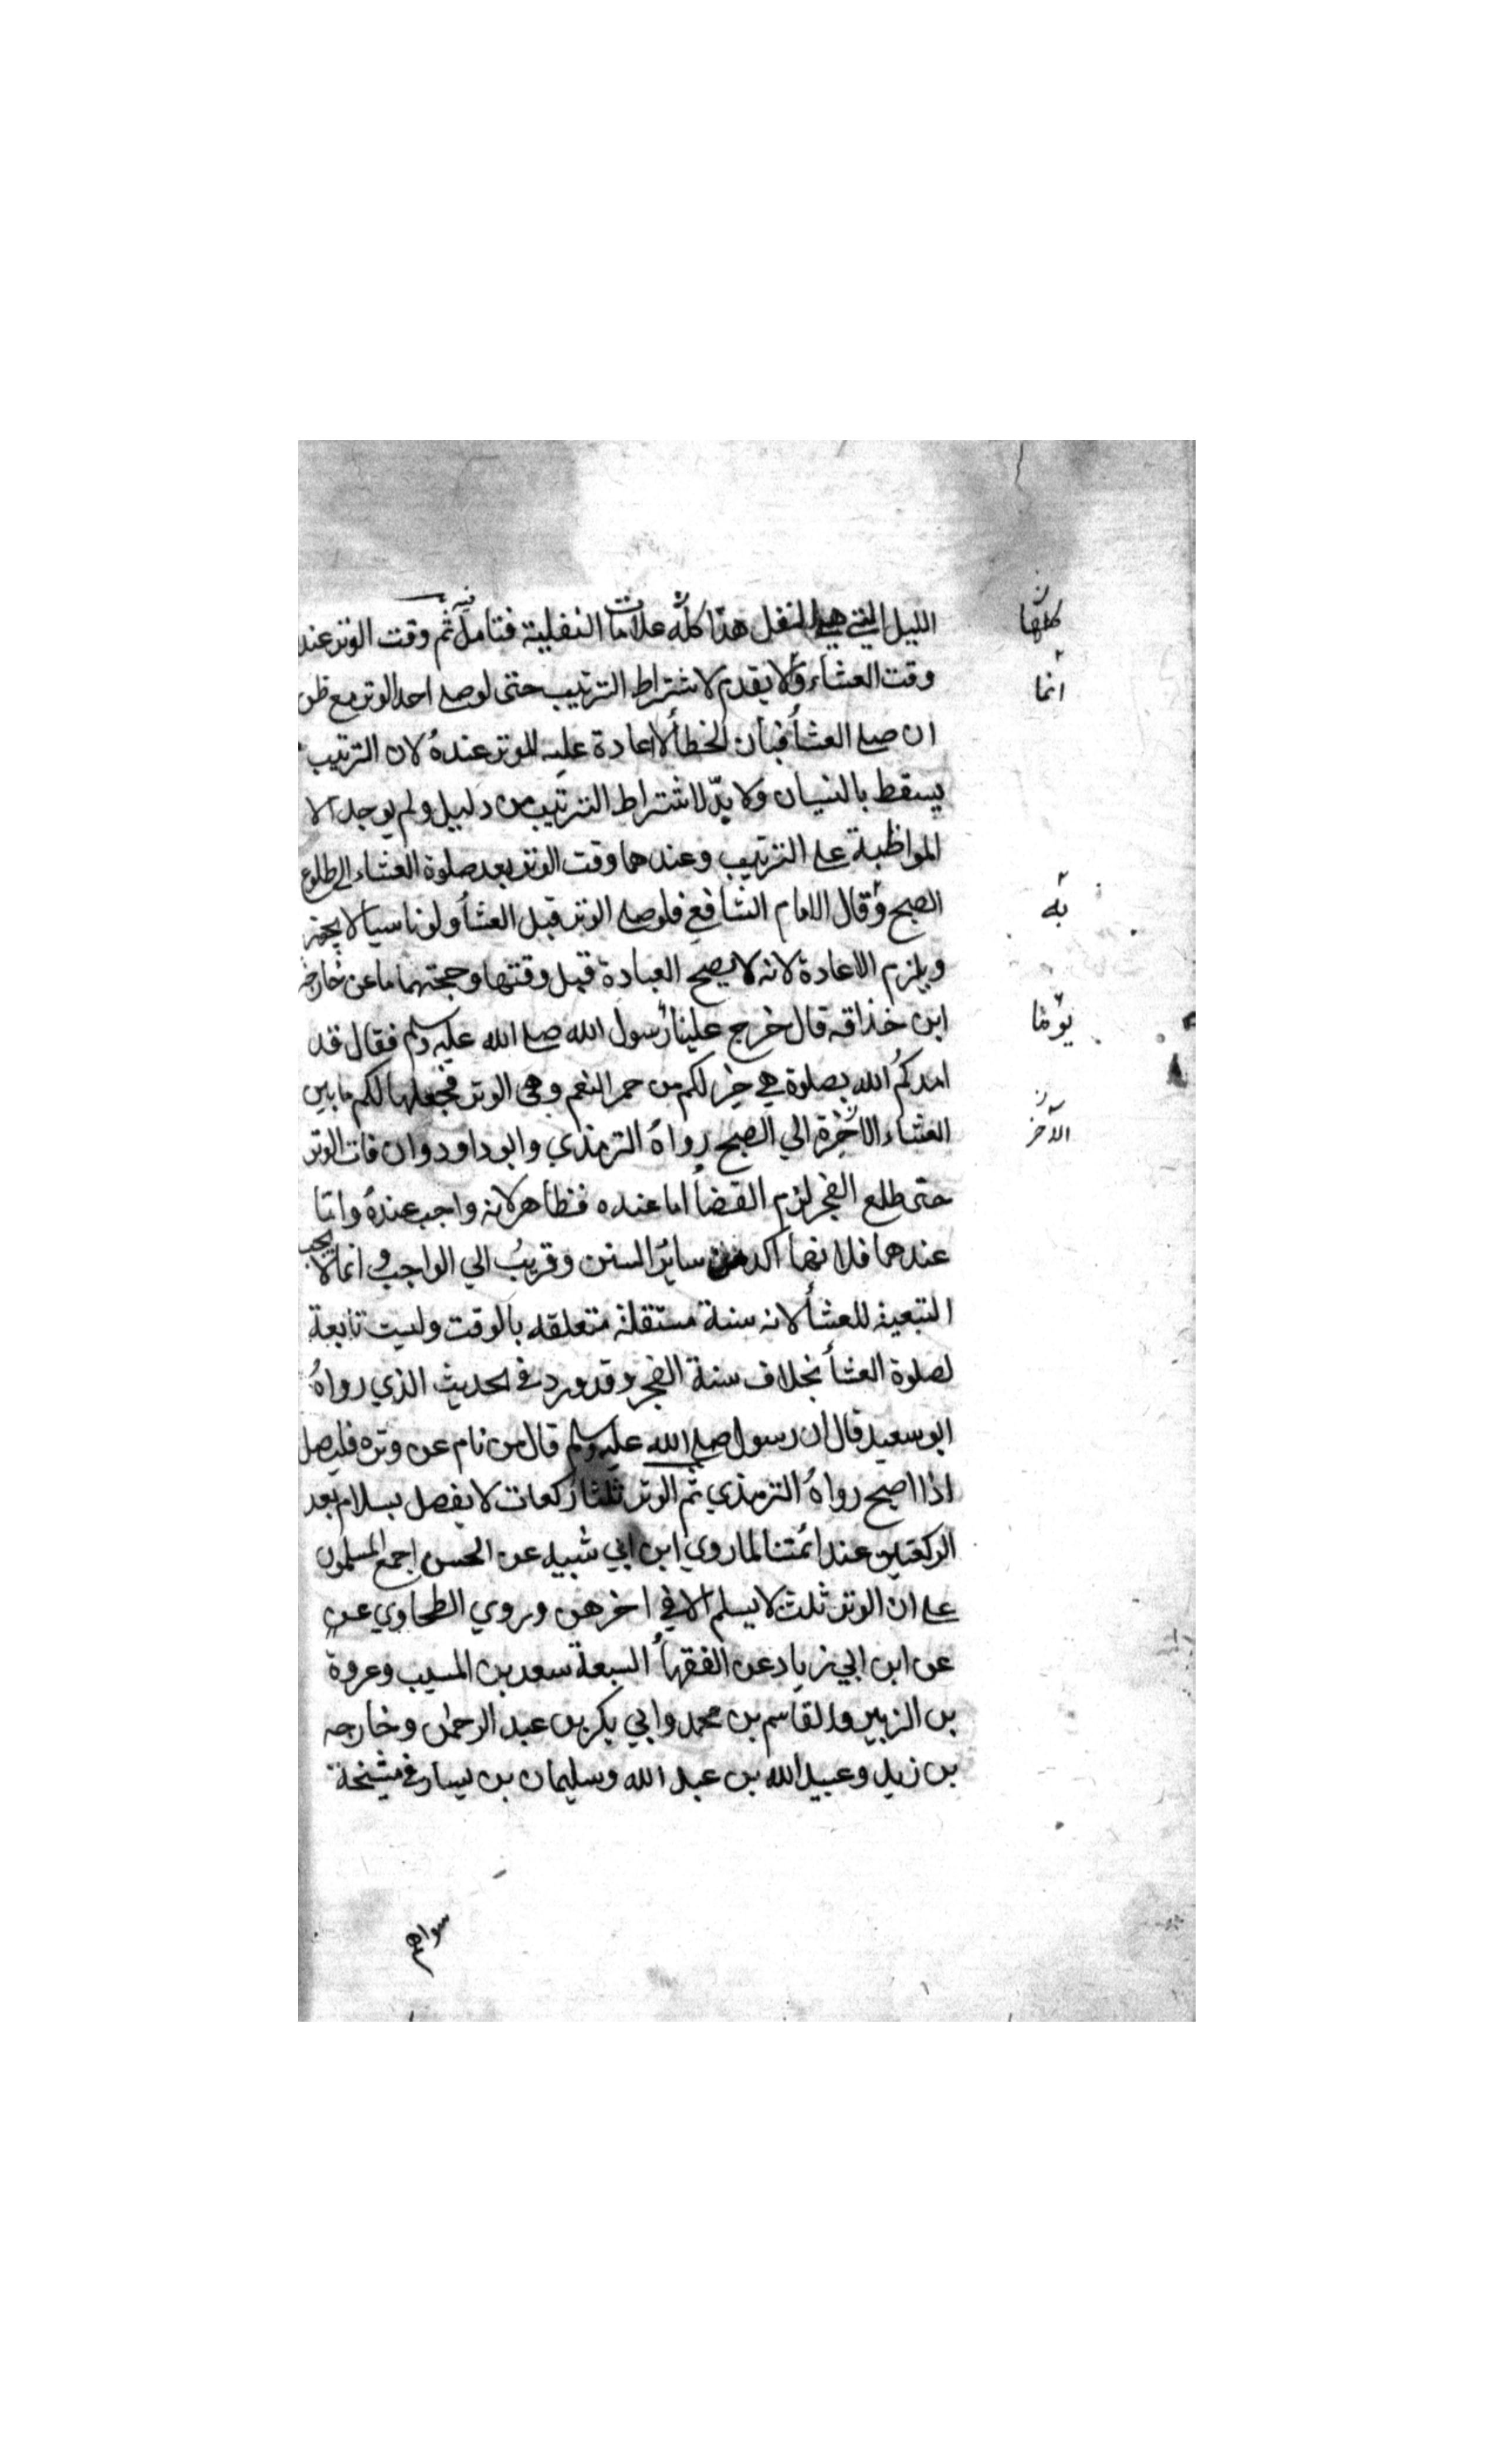 الليل التي هي النفل هذا كله علامات النفلية فتامل فيه ثم وقت الوتر عند
وقت العشاء ولا يقدم لاشتراط الترتيب حتى لو صلى احد الوتر مع ظن
ان صلى العشأ فبان الخطأ لا اعادة عليه للوتر عنده لان الترتيب
يسقط بالنسيان ولا بدّ لاشتراط الترتيب من دليل ولم يوجد الا
المواظبة على الترتيب وعندهما وقت الوتر بعد صلوة العشاء الى طلوع
الصبح وقال الامام الشافعي فلو صلى الوتر قبل العشأ ولو ناسيا لا يجز
ويلزم الاعادة لانه لا يصح العبادة قبل وقتها وحجتهما ما عن خارجه
ابن خذاقه قال خرج علينا رسول الله صلى الله عليه وسلم فقال قد
امدكم الله بصلوة هي خير لكم من حمر النعم وهى الوتر فجعلها لكم ما بين
العشاء الاخرة الي الصبح رواه الترمذي وابو داود وان فات الوتر
حتى طلع الفجر لزم القضأ اما عنده فظاهر لانه واجب عنده واما
عندهما فلانها اكد من سائر السنن وقريب الي الواجب وانما لا يجب
التبعية للعشأ لانه سنة مستقلة متعلقه بالوقت وليست تابعة
لصلوة العشأ بخلاف سنة الفجر وقد ورد في الحديث الذي رواه
ابو سعيد قال ان رسول صلى الله عليه وسلم قال من نام عن وتره فليصل
اذا اصبح رواه الترمذي ثم الوتر ثلثا ركعات لا يفصل بسلام بعد
الركعتين عند ائمتنا لما روي ابن ابي شيبه عن الحسن اجمع المسلمون
على ان الوتر ثلث لا يسلم الا في اخرهن وروي الطحاوي عن
عن ابن ابي زياد عن الفقهأ السبعة سعد بن المسيب وعروة
بن الزبير والقاسم بن محمد وابي بكر بن عبد الرحمن وخارجه
بن زيد وعبيد الله بن عبد الله وسليمان بن يسار في مشيخة
سواهم
كلها
انما
به
يوما
الآخر